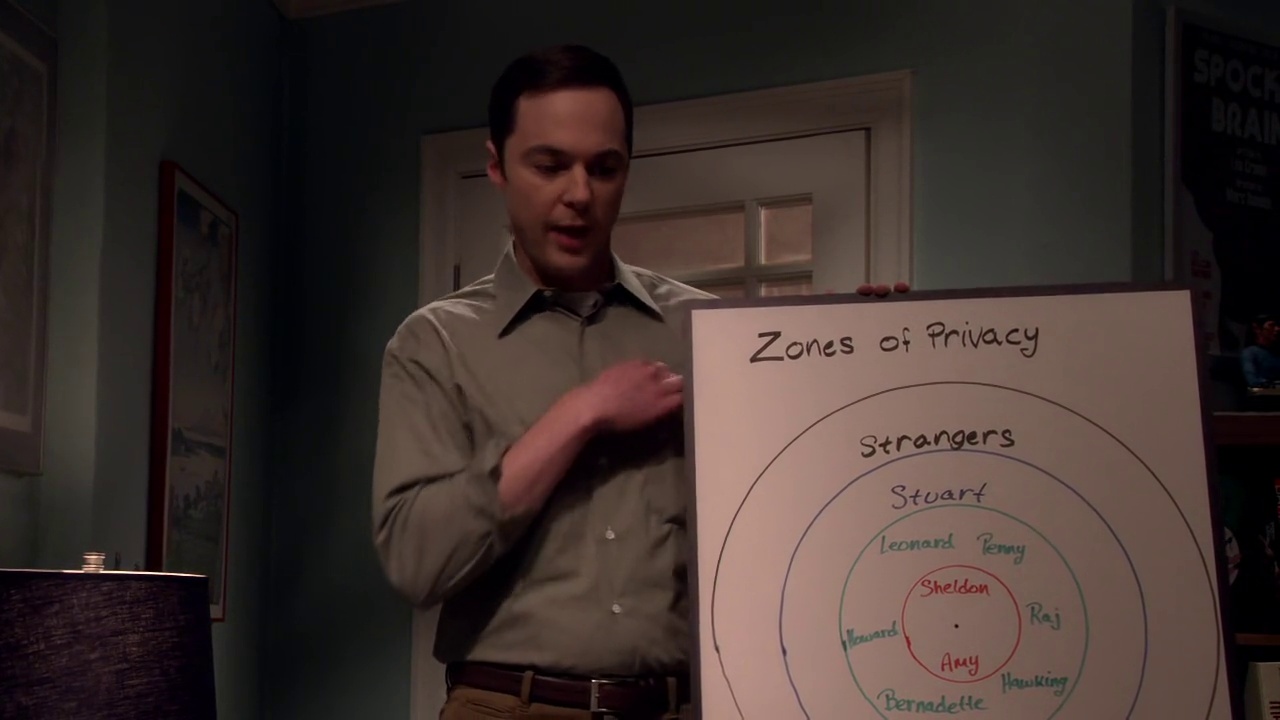 SPOCK
BRAIN
Zones of Privacy
Strangers
Stuart
Leonard Penny
Sheldon
Howard
Raj
Amy
Hawking
Bernadette